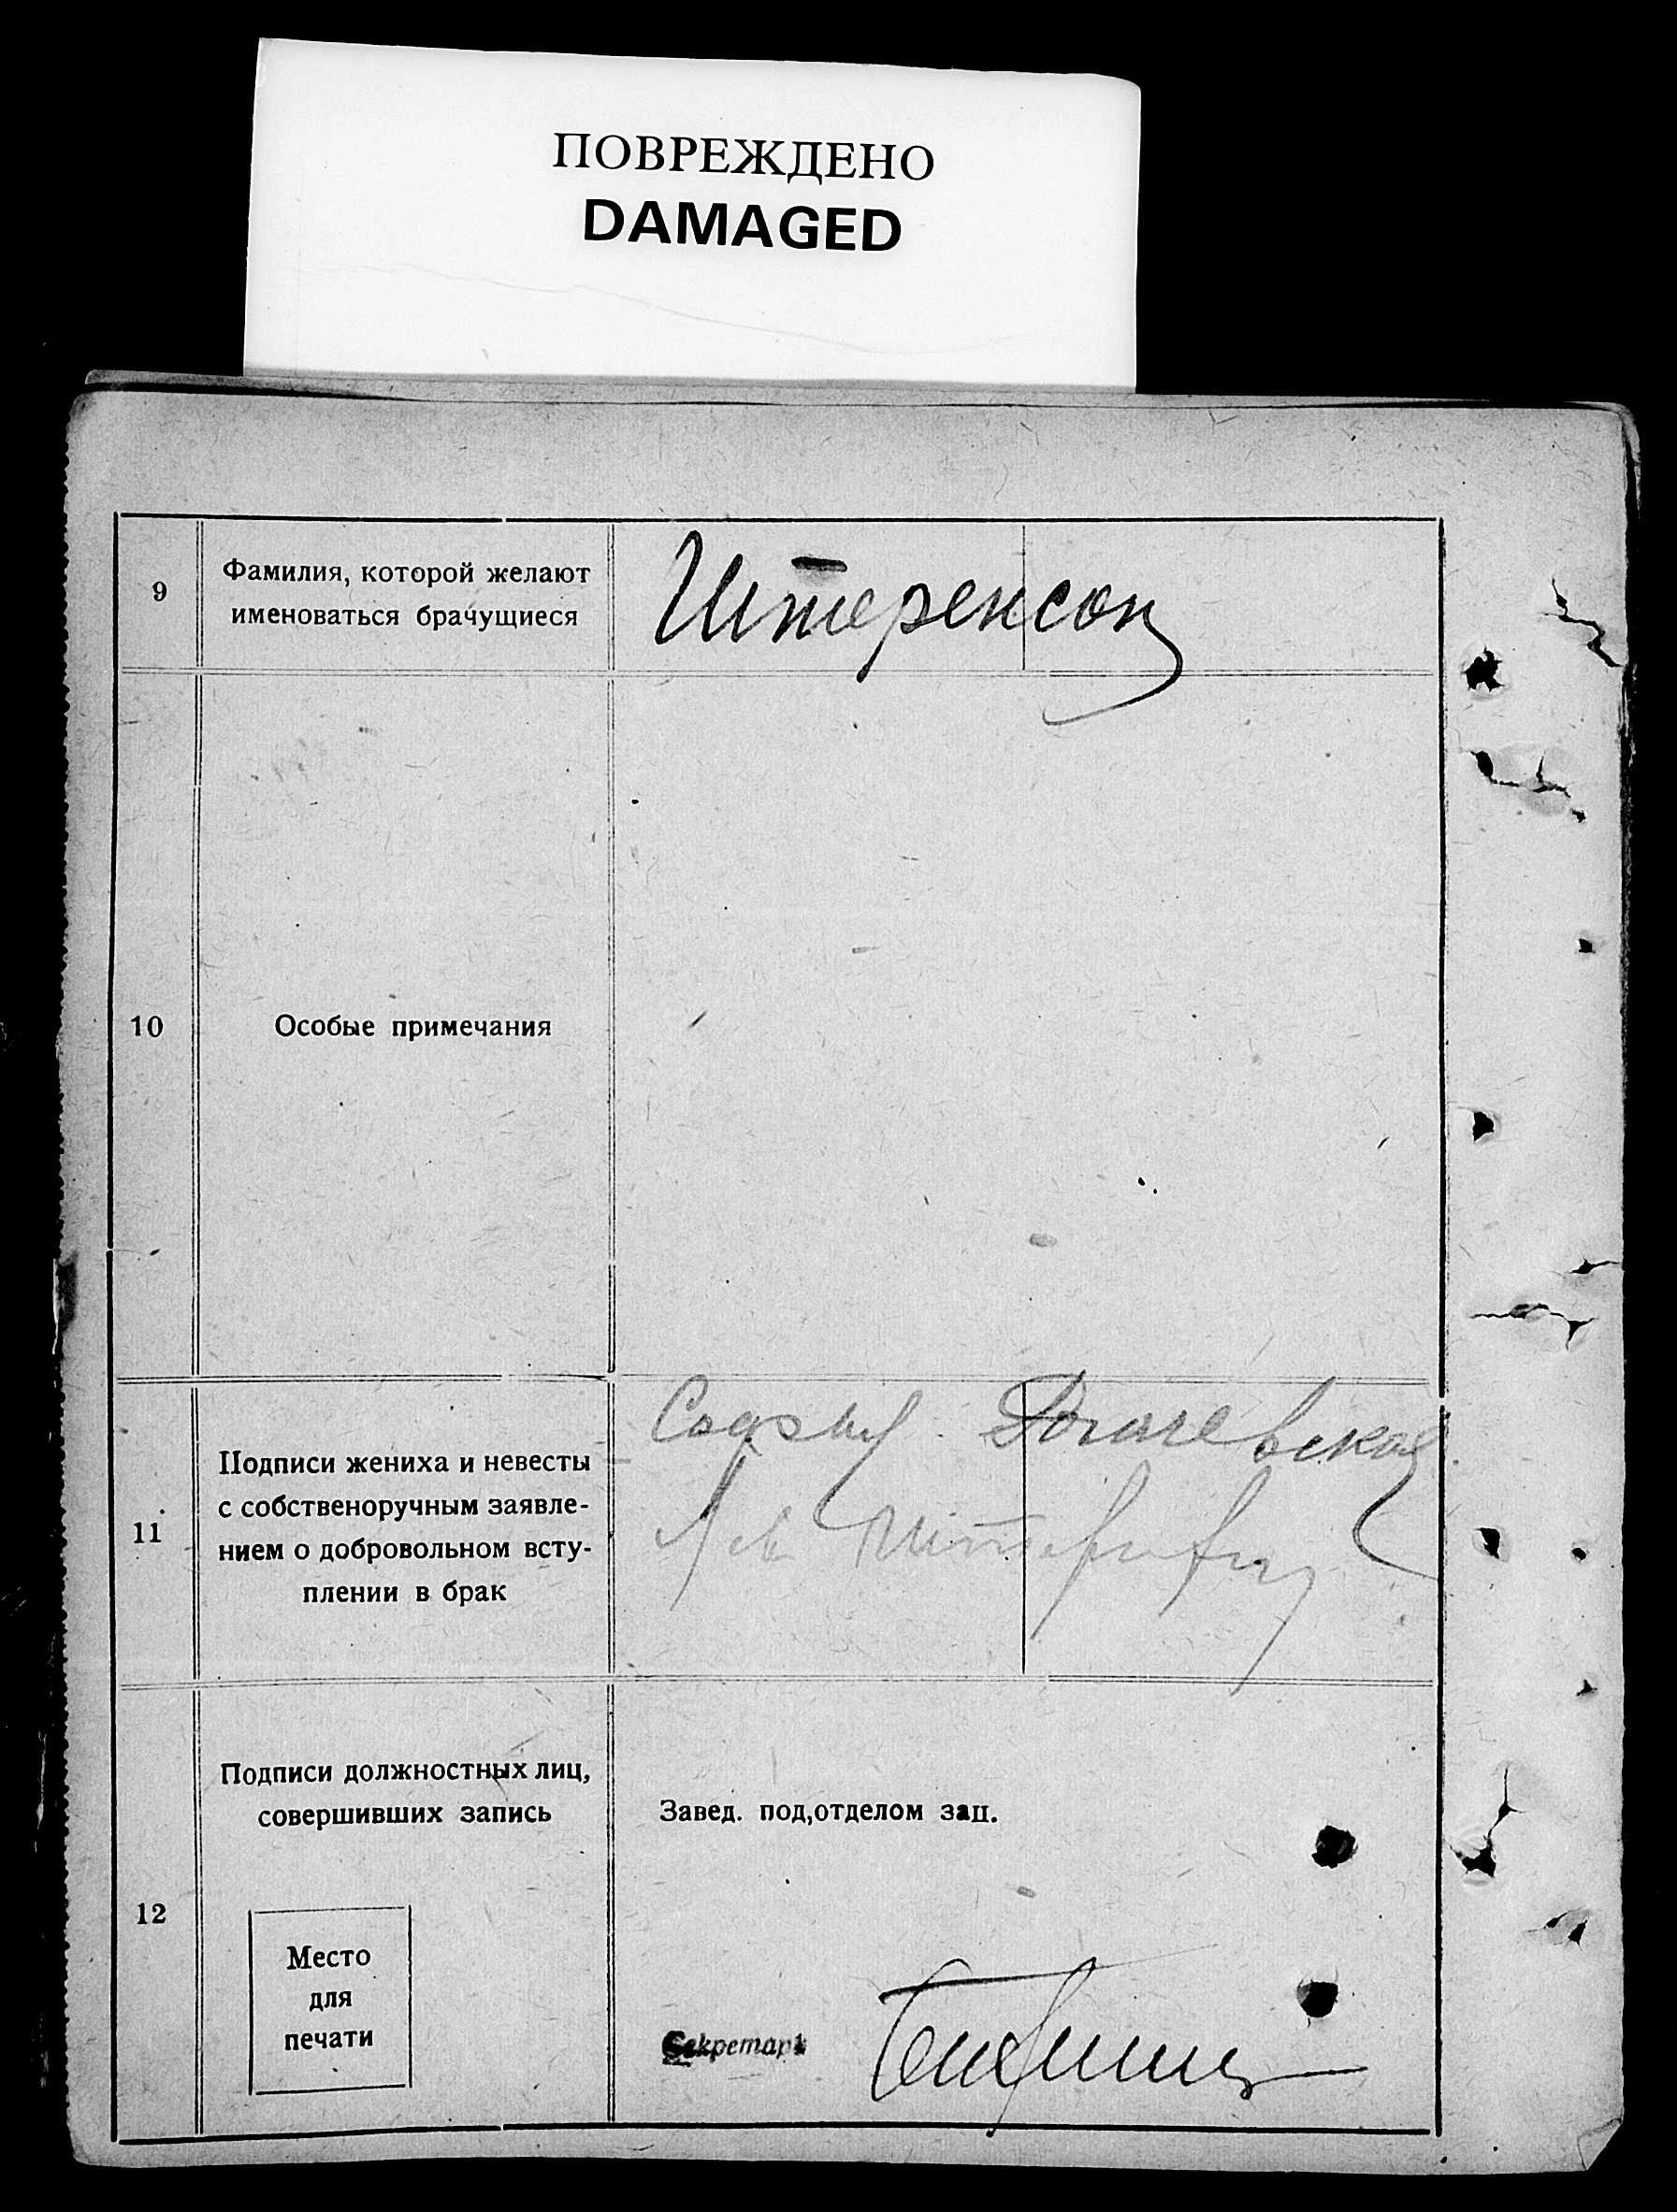 ПОВРЕЖДЕНО
DAMAGED
9
Фамилия, которой желают
именоваться брачущиеся
Штеренсон
10
Особые примечания
11
Подписи жениха и невесты
с собственоручным заявле-
нием о добровольном всту-
плении в брак
Рогачевская
Лев
12
Подписи должностных лиц,
совершивших запись
Завед. под,отделом зац.
Место
для
печати
Секретарь